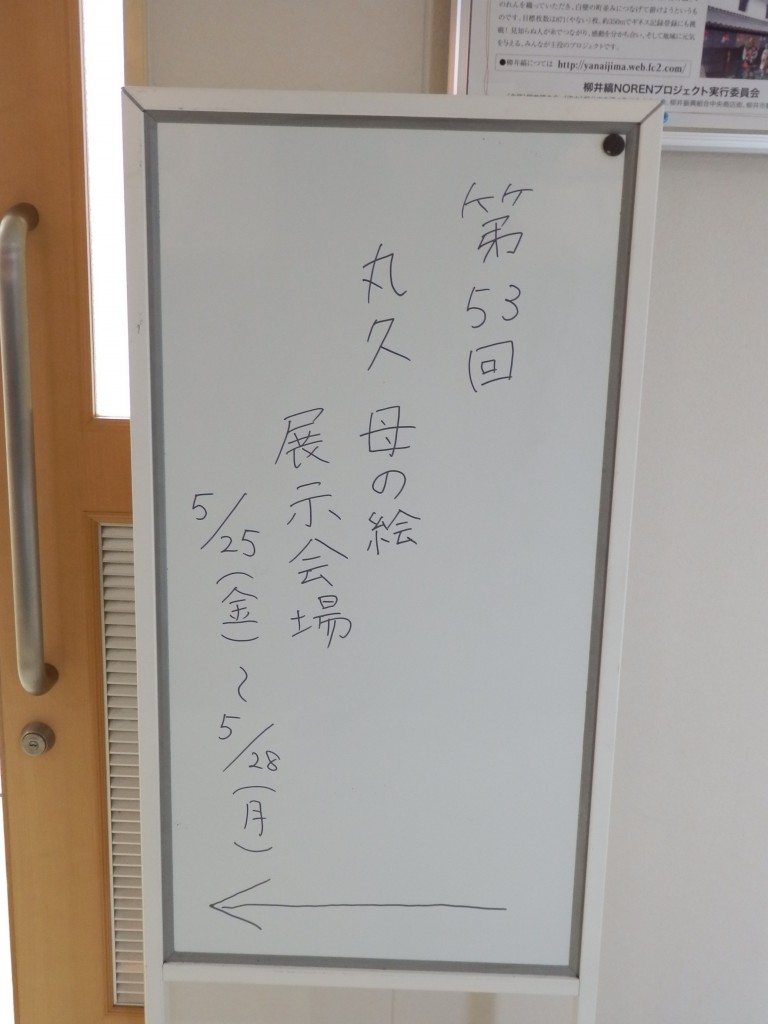 のれんを織っていただき、白壁の町並みにつなげて掛けようというも
のです。
見知らぬ人が糸でつながり、感動を分かち合い、そして地域に元気
を与える、みんなが主役のプロジェクトです。
●柳井縞については http://yanaijima.web.fc2.com/
柳井縞NORENプロジェクト実行委員会
第53回
丸久 母の絵
展示会場
5/25(金)～5/28(月)